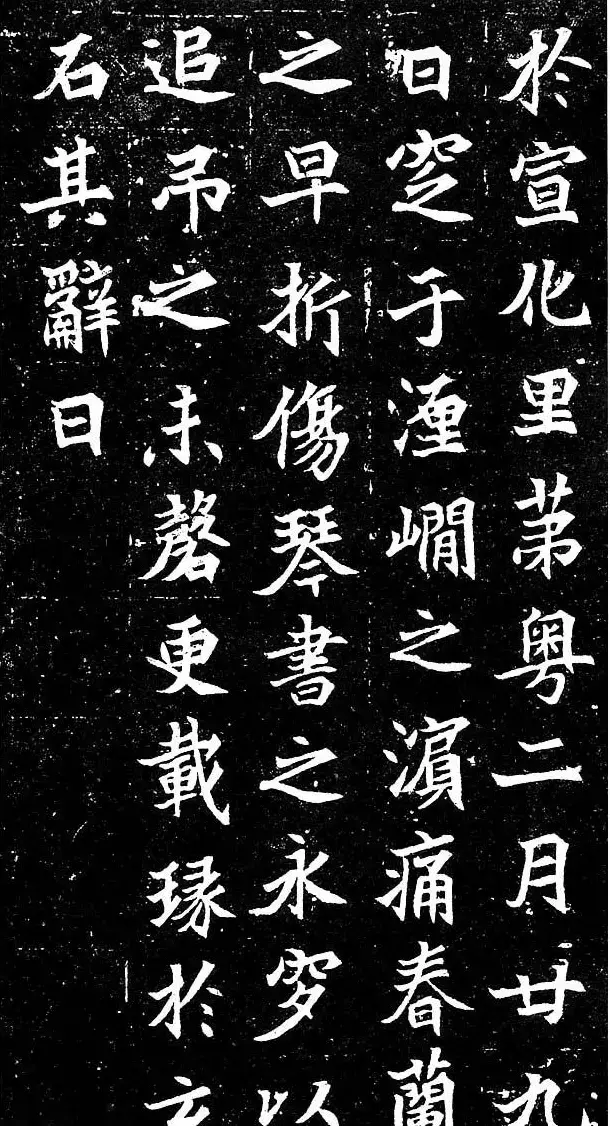 於宣化里苐粤二月廿九
日窆于湹㵎之濵痛春蘭
之早折傷琴書之永穸以
追吊之未罄更載瑑於玄
石其辭曰